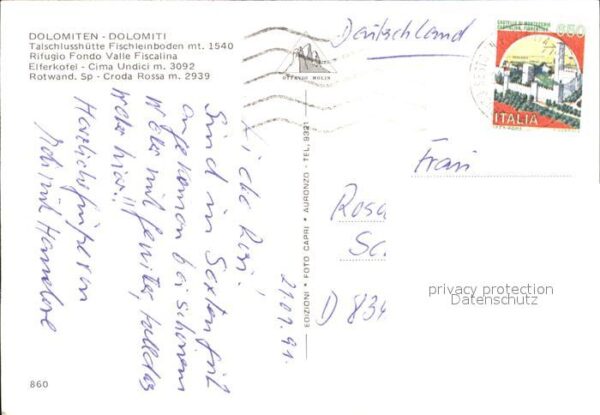 DOLOMITEN - DOLOMITI
Talschlusshütte Fischleinboden mt. 1540
Rifugio Fondo Valle Fiscalina
Elferkofel - Cima Undici m. 3092
Rotwand. Sp - Croda Rossa m. 2939
OTTAVIO MOLIN
Deutschland
CASTELLO DI MONTECCHIO
CASTIGLION FIORENTINO
850
ITALIA
Liebe Rosi!
Sind in Sexten gut
angekommen bei schönem
Wetter mit Gewitter,
hier!!
Herzliche Grüße von
Hannelore
21.07.91.
EDIZIONI * FOTO CAPRI * AURONZO - TEL. 9321
Frau
Rosa
Sc
D 834
privacy protection
Datenschutz
860